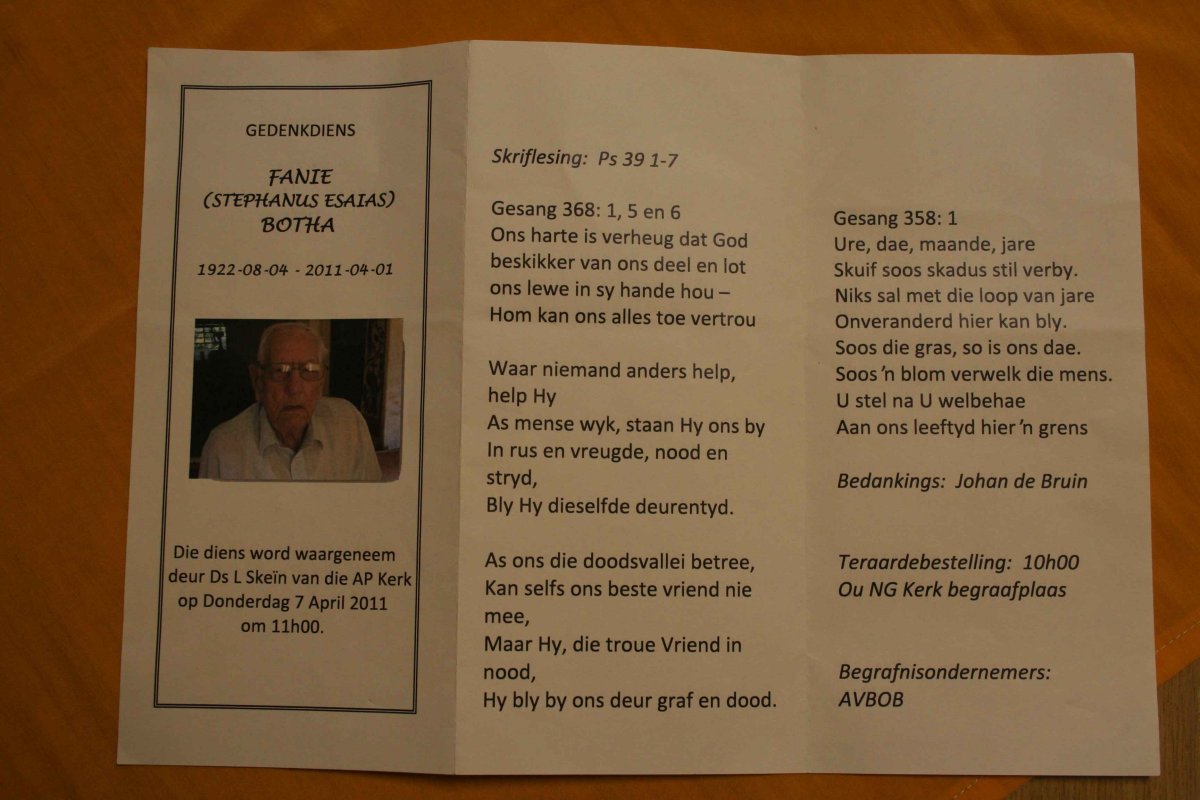 GEDENKDIENS
FANIE
(STEPHANUS ESAIAS)
BOTHA
1922-08-04 - 2011-04-01
Die diens word waargeneem
deur Ds L Skeïn van die AP Kerk
op Donderdag 7 April 2011
om 11h00.
Skriflesing: Ps 39 1-7
Gesang 368: 1, 5 en 6
Ons harte is verheug dat God
beskikker van ons deel en lot
ons lewe in sy hande hou –
Hom kan ons alles toe vertrou
Waar niemand anders help,
help Hy
As mense wyk, staan Hy ons by
In rus en vreugde, nood en
stryd,
Bly Hy dieselfde deurentyd.
As ons die doodsvallei betree,
Kan selfs ons beste vriend nie
mee,
Maar Hy, die troue Vriend in
nood,
Hy bly by ons deur graf en dood.
Gesang 358: 1
Ure, dae, maande, jare
Skuif soos skadus stil verby.
Niks sal met die loop van jare
Onveranderd hier kan bly.
Soos die gras, so is ons dae.
Soos 'n blom verwelk die mens.
U stel na U welbehae
Aan ons leeftyd hier 'n grens
Bedankings: Johan de Bruin
Teraardebestelling: 10h00
Ou NG Kerk begraafplaas
Begrafnisondernemers:
AVBOB